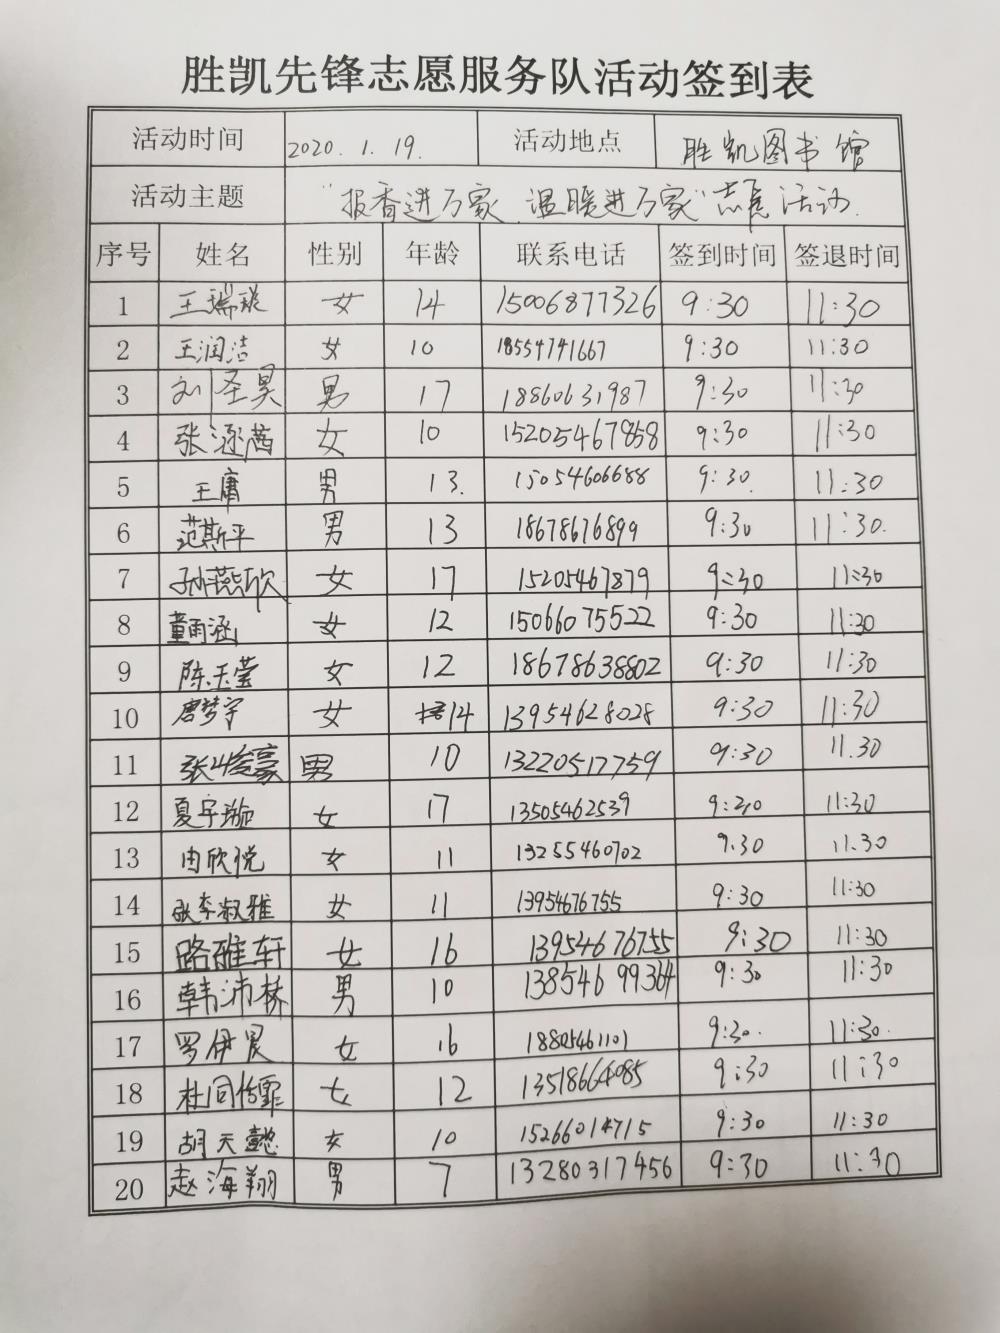 胜凯先锋志愿服务队活动签到表
活动时间 2020.1.19. 活动地点 胜凯图书馆
活动主题 "报香进万家 温暖进万家"志愿活动.
序号 姓名 性别 年龄 联系电话 签到时间 签退时间
1 王瑞璇 女 14 15006877326 9:30 11:30
2 王润洁 女 10 18554741667 9:30 11:30
3 刘圣昊 男 17 18860631987 9:30 11:30
4 张涵茜 女 10 15205467858 9:30 11:30
5 王庸 男 13. 15054606688 9:30. 11:30
6 范斯平 男 13 18678676899 9:30 11:30.
7 孙燕欣 女 17 15205467879 9:30 11:30
8 董雨涵 女 12 15066075522 9:30 11:30
9 陈玉莹 女 12 18678638802 9:30 11:30
10 唐梦宇 女 14 13954628028 9:30 11:30
11 张峻豪 男 10 13220517759 9:30 11.30
12 夏宇璇 女 17 13505462539 9:30 11:30
13 由欣悦 女 11 13255460702 9.30 11.30
14 张李淑雅 女 11 13954676755 9:30 11:30
15 路雅轩 女 16 13954676755 9:30 11:30
16 韩沛林 男 10 13854699364 9:30 11:30
17 罗伊晨 女 16 18805461101 9:30. 11:30.
18 杜同传霏 女 12 13518664085 9:30 11:30
19 胡天懿 女 10 15266014715 9:30 11:30
20 赵海翔 男 7 13280317456 9:30 11:30